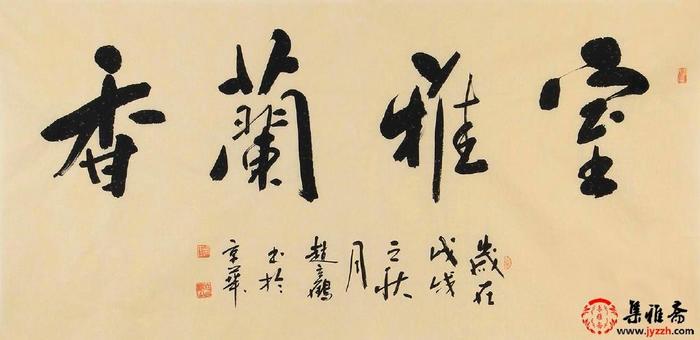 室雅蘭香
歲在
戊戌
之秋
月
趙立鶴
書於
京華
集雅斋
www.jyzzh.com